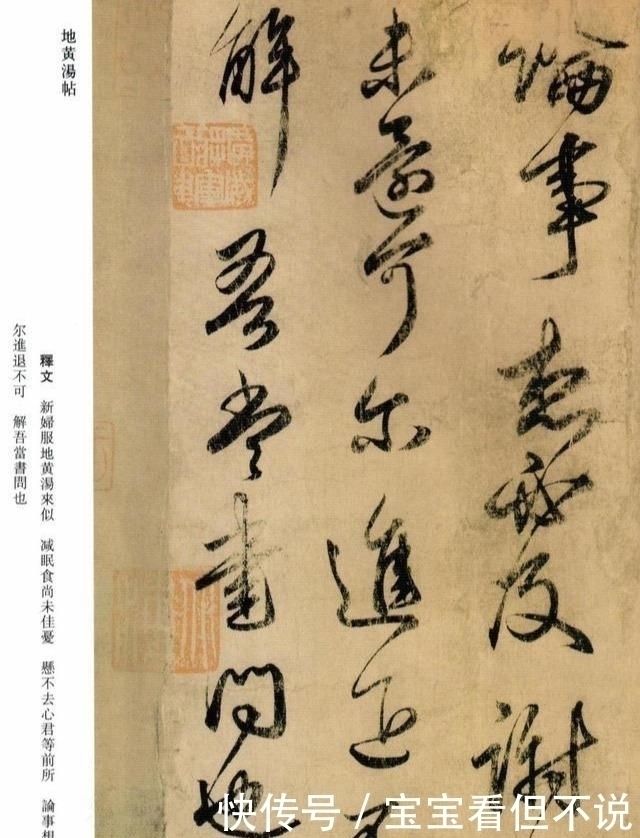 論事想必及謝
未還可尔進退不
解吾當書問也
地黃湯帖
釋文 新婦服地黃湯來似 减眠食尚未佳憂 懸不去心君等前所 論事想
尔進退不可 解吾當書問也
快传号/宝宝看但不说